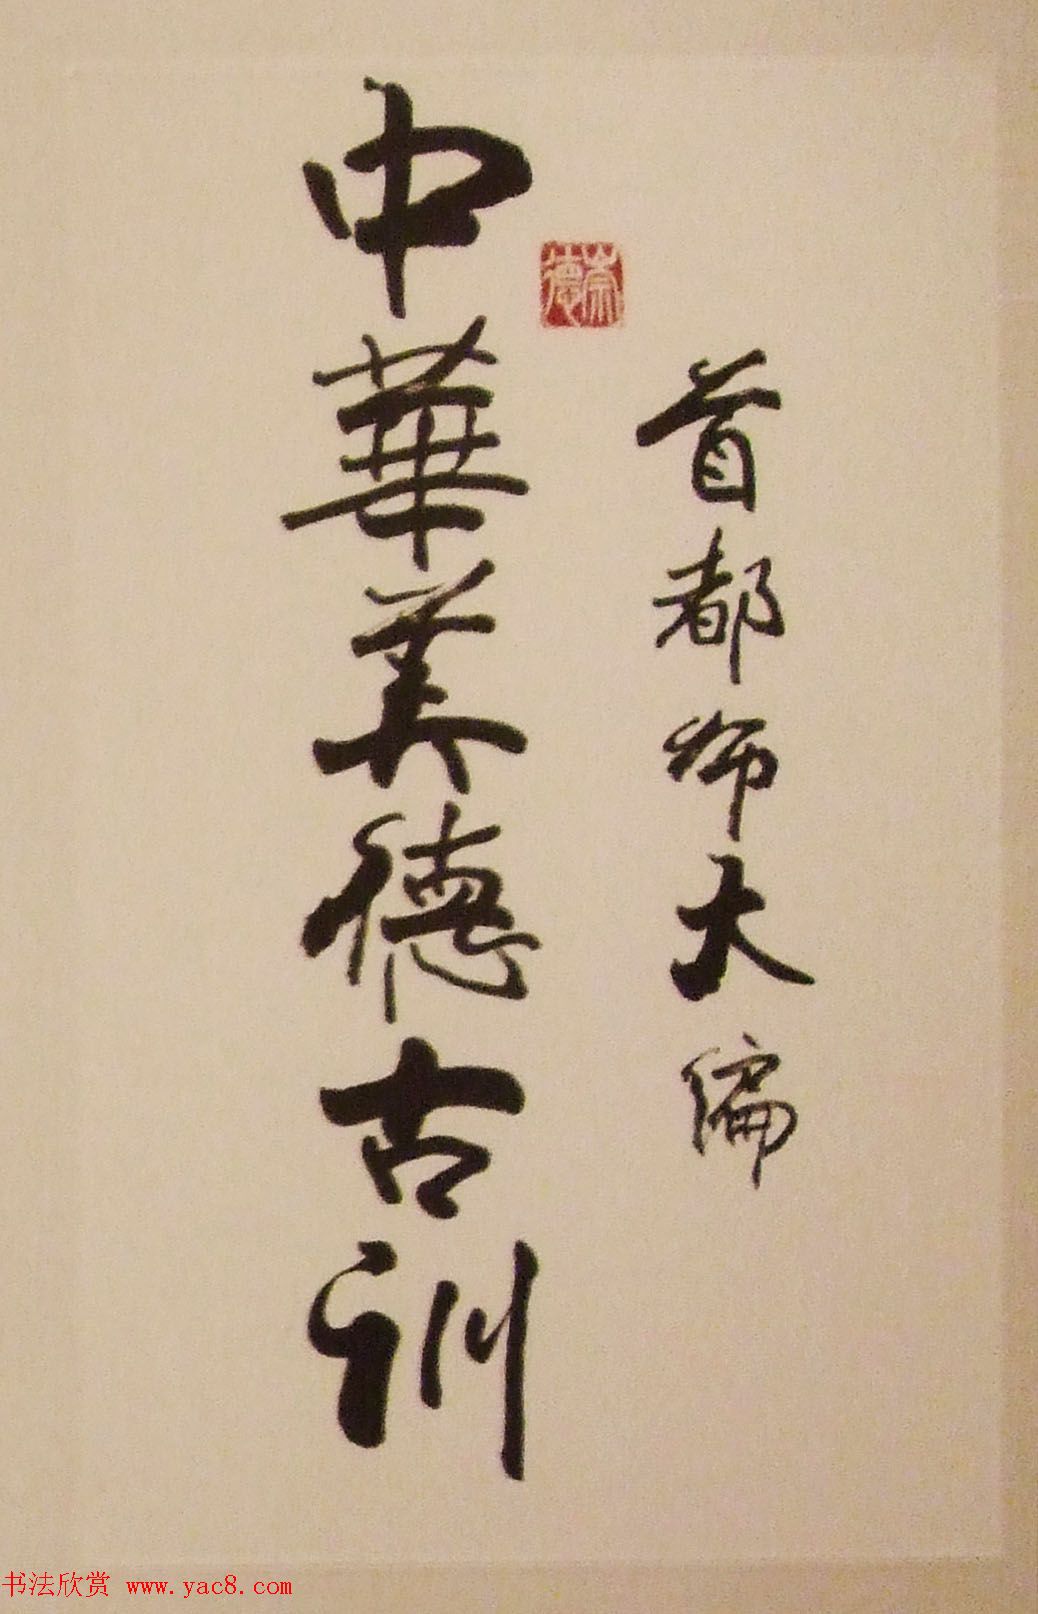 首都师大编
崇德
中華美德古训
书法欣赏 www.yac8.com